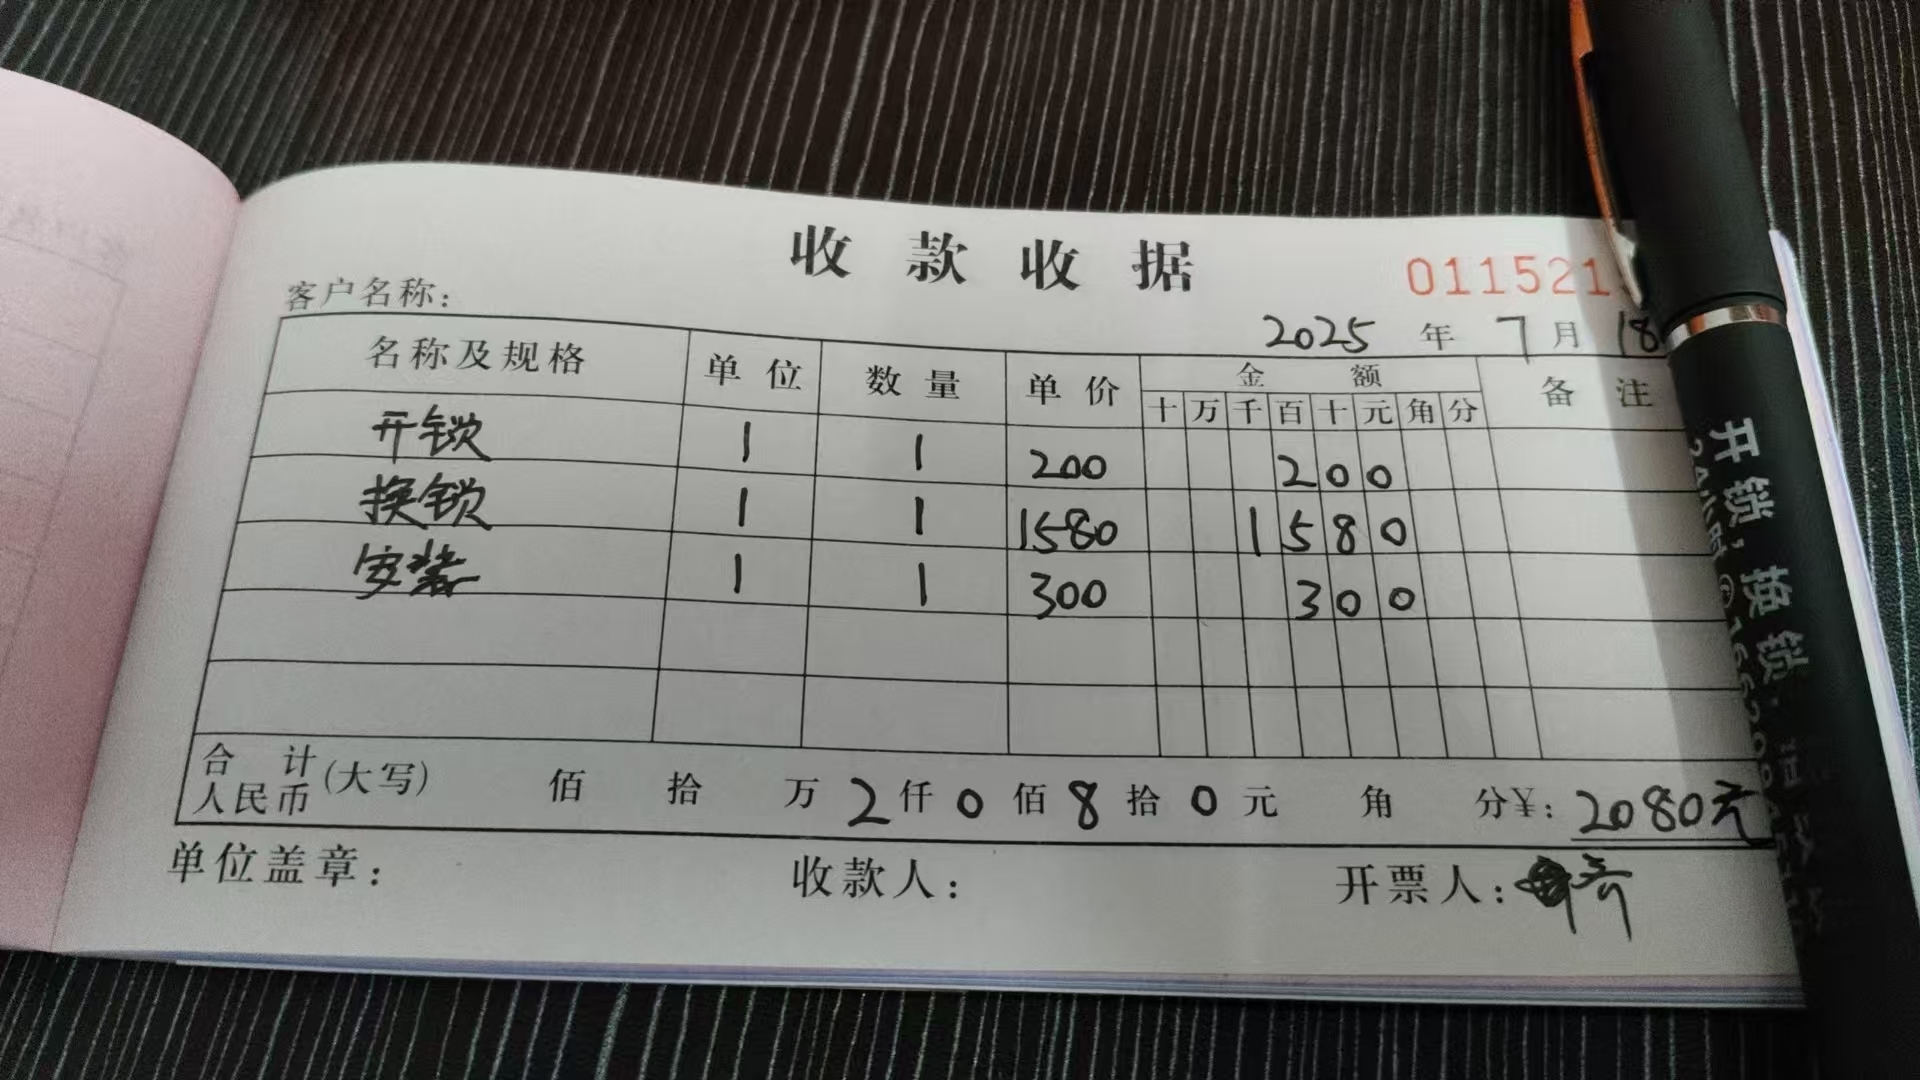 收款收据
011521
客户名称：
2025 年 7 月 18
名称及规格 单位 数量 单价 金额 备注
十 万 千 百 十 元 角 分
开锁 1 1 200 200
换锁 1 1 1580 1580
安装 1 1 300 300
合计人民币(大写) 佰 拾 万 2 仟 0 佰 8 拾 0 元 角 分 ¥：2080元
单位盖章： 收款人： 开票人：
开锁，换锁，